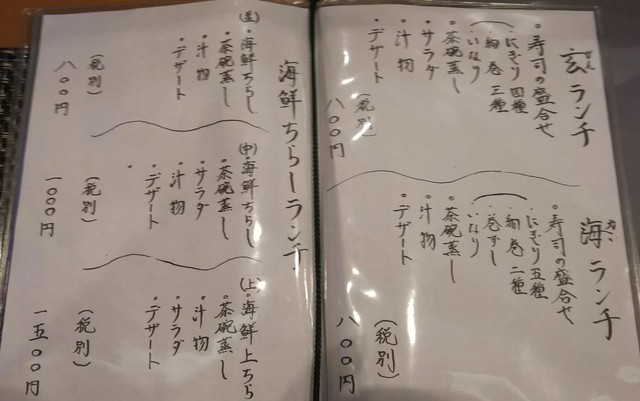 玄ランチ
げん
・寿司の盛合せ
にぎり四種
細巻三種
いなり
・茶碗蒸し
・サラダ
・汁物
・デザート
(税別)
八〇〇円
海ランチ
カイ
・寿司の盛合せ
にぎり五種
細巻二種
巻ずし
いなり
・茶碗蒸し
・汁物
・デザート
(税別)
八〇〇円
海鮮ちらしランチ
・海鮮ちらし
・茶碗蒸し
・汁物
・デザート
(税別)
八〇〇円
(中)・海鮮ちらし
・茶碗蒸し
・サラダ
・汁物
・デザート
(税別)
一〇〇〇円
(上)・海鮮上ちら
・茶碗蒸し
・汁物
・サラダ
・デザート
(税別)
一五〇〇円